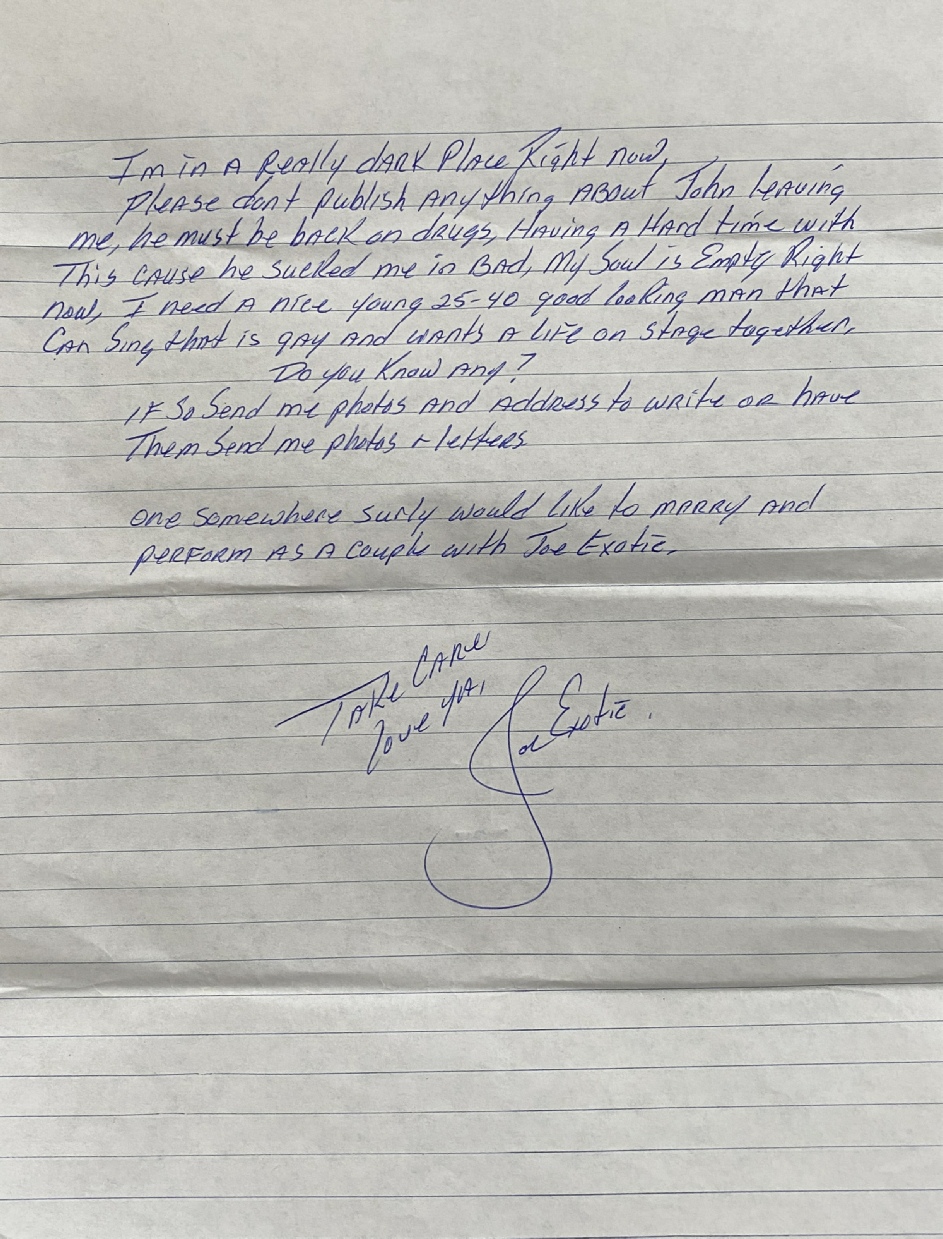 I'm in A Really dARK Place Right now,
Please dont Publish Anything About John leaving
me, he must be back on drugs, Having A Hard time with
This cause he sucked me in BAD, My Soul is Empty Right
now, I need A nice young 25-40 good looking man that
Can Sing that is gay and wants A life on stage together.
Do you Know Any?
IF So Send me photos and Address to write or have
Them Send me photos + letters
one somewhere surly would like to marry and
perform as a couple with Joe Exotic.
Take Care
love ya,
Joe Exotic.